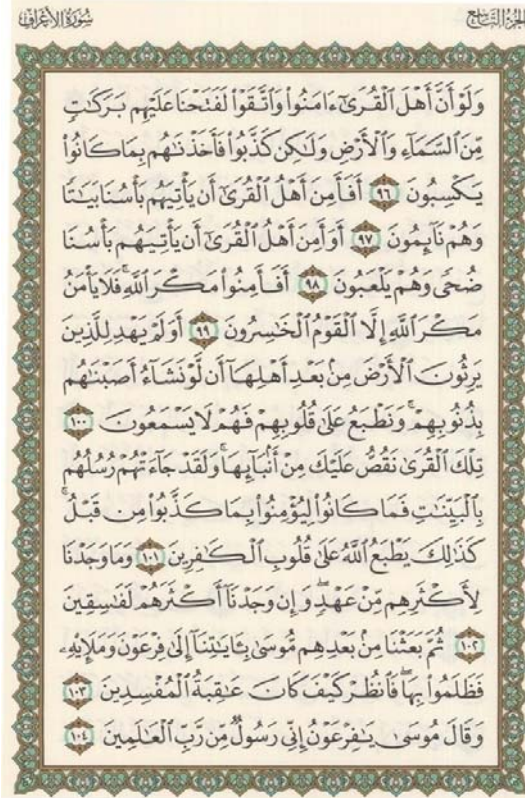 الجزء التاسع
سورة الأعراف
وَلَوْ أَنَّ أَهْلَ ٱلْقُرَىٰٓ ءَامَنُوا۟ وَٱتَّقَوْا۟ لَفَتَحْنَا عَلَيْهِم بَرَكَـٰتٍ
مِّنَ ٱلسَّمَآءِ وَٱلْأَرْضِ وَلَـٰكِن كَذَّبُوا۟ فَأَخَذْنَـٰهُم بِمَا كَانُوا۟
يَكْسِبُونَ ٩٦ أَفَأَمِنَ أَهْلُ ٱلْقُرَىٰٓ أَن يَأْتِيَهُم بَأْسُنَا بَيَـٰتًا
وَهُمْ نَآئِمُونَ ٩٧ أَوَأَمِنَ أَهْلُ ٱلْقُرَىٰٓ أَن يَأْتِيَهُم بَأْسُنَا
ضُحًى وَهُمْ يَلْعَبُونَ ٩٨ أَفَأَمِنُوا۟ مَكْرَ ٱللَّهِ ۚ فَلَا يَأْمَنُ
مَكْرَ ٱللَّهِ إِلَّا ٱلْقَوْمُ ٱلْخَـٰسِرُونَ ٩٩ أَوَلَمْ يَهْدِ لِلَّذِينَ
يَرِثُونَ ٱلْأَرْضَ مِنۢ بَعْدِ أَهْلِهَآ أَن لَّوْ نَشَآءُ أَصَبْنَـٰهُم
بِذُنُوبِهِمْ ۚ وَنَطْبَعُ عَلَىٰ قُلُوبِهِمْ فَهُمْ لَا يَسْمَعُونَ ١٠٠
تِلْكَ ٱلْقُرَىٰ نَقُصُّ عَلَيْكَ مِنْ أَنۢبَآئِهَا ۚ وَلَقَدْ جَآءَتْهُمْ رُسُلُهُم
بِٱلْبَيِّنَـٰتِ فَمَا كَانُوا۟ لِيُؤْمِنُوا۟ بِمَا كَذَّبُوا۟ مِن قَبْلُ ۚ
كَذَٰلِكَ يَطْبَعُ ٱللَّهُ عَلَىٰ قُلُوبِ ٱلْكَـٰفِرِينَ ١٠١ وَمَا وَجَدْنَا
لِأَكْثَرِهِم مِّنْ عَهْدٍ ۖ وَإِن وَجَدْنَآ أَكْثَرَهُمْ لَفَـٰسِقِينَ
١٠٢ ثُمَّ بَعَثْنَا مِنۢ بَعْدِهِم مُّوسَىٰ بِـَٔايَـٰتِنَآ إِلَىٰ فِرْعَوْنَ وَمَلَإِي۟هِۦ
فَظَلَمُوا۟ بِهَا ۖ فَٱنظُرْ كَيْفَ كَانَ عَـٰقِبَةُ ٱلْمُفْسِدِينَ ١٠٣
وَقَالَ مُوسَىٰ يَـٰفِرْعَوْنُ إِنِّى رَسُولٌ مِّن رَّبِّ ٱلْعَـٰلَمِينَ ١٠٤